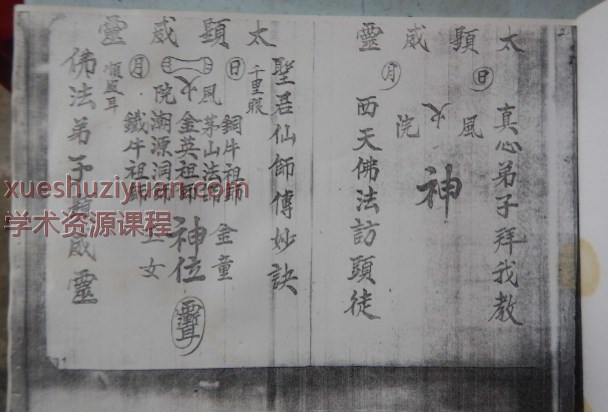 太顯威靈
真心弟子拜我教
日 月
風火院
神
西天佛法訪頭徒
太顯威靈
聖君仙師傳妙訣
千里眼
日 月
風火院
銅牛祖師 金童
茅山法師
金英祖師 神位
潮源洞師
鐵牛祖師 玉女
順風耳
佛法弟子 威靈
xueshuziyuan.com
学术资源课程